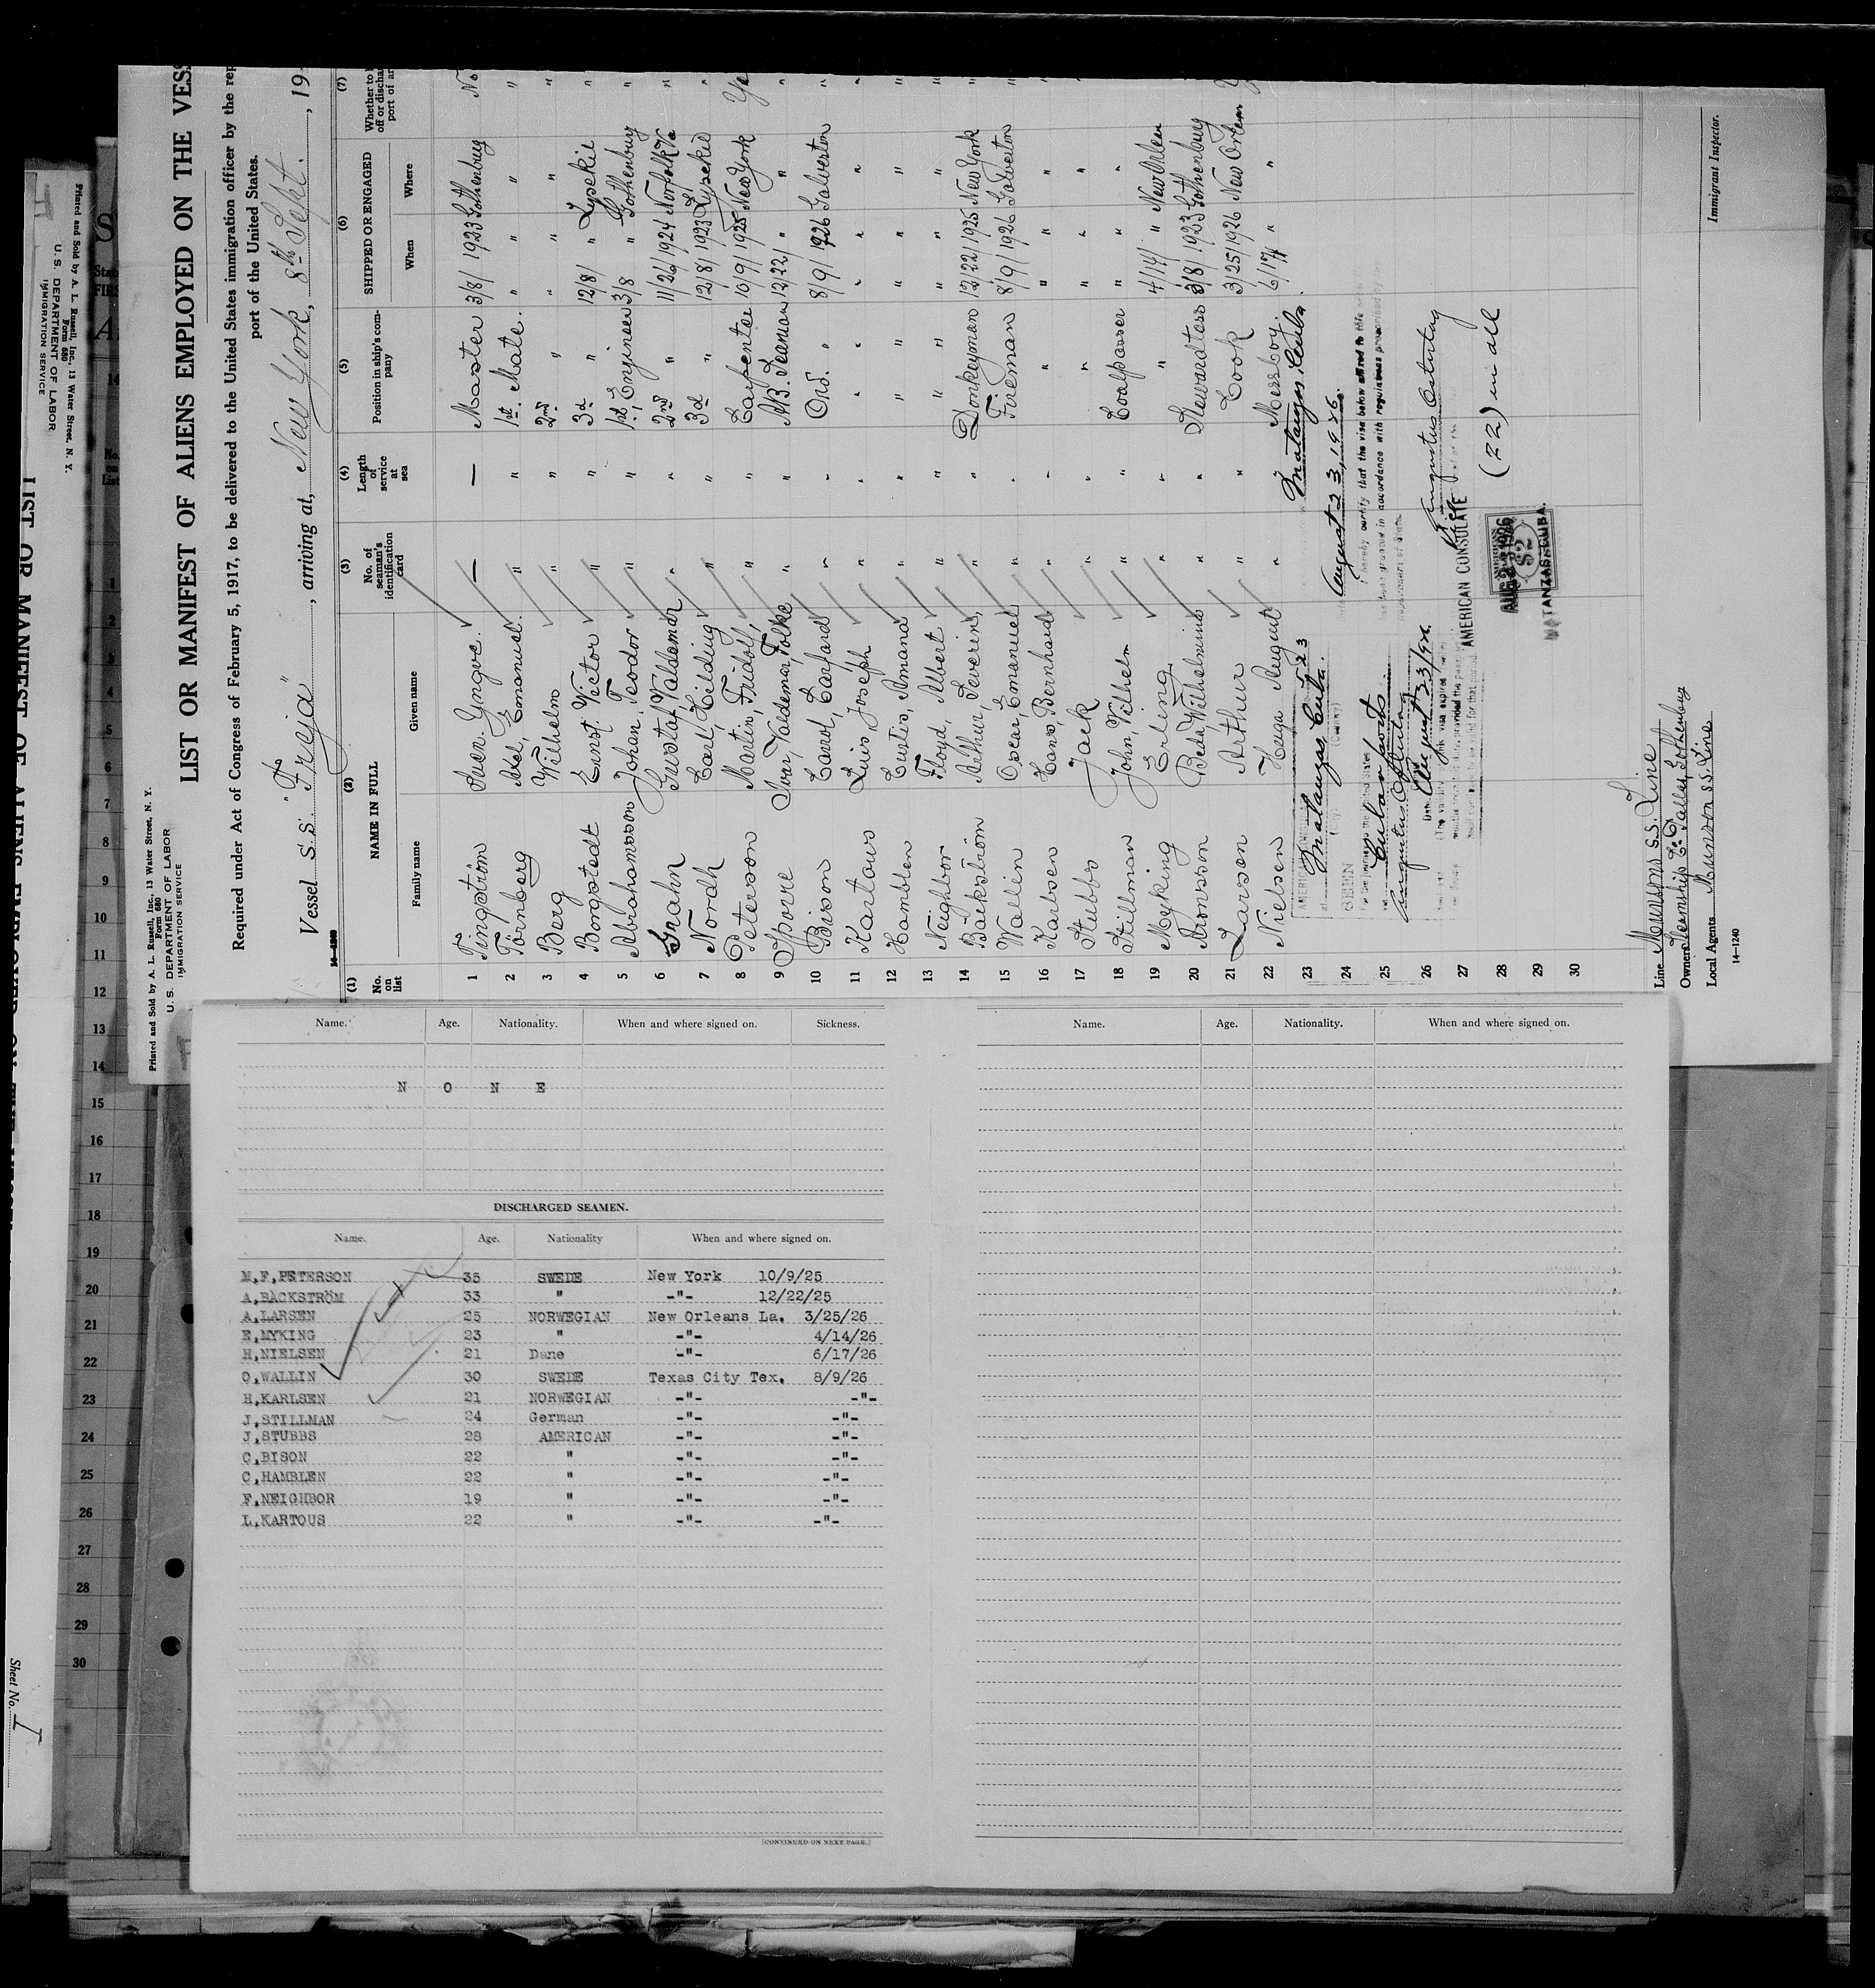 LIST OR MANIFEST OF ALIENS EMPLOYED ON THE VESS
Required under Act of Congress of February 5, 1917, to be delivered to the United States immigration officer by the rep
port of the United States.
Vessel S.S. "Freja", arriving at, New York, 8th Sept., 19
14-1240
(1) (2) (3) (4) (5) (6) (7)
No. on list NAME IN FULL No. of seaman's identification card Length of service at sea Position in ship's company SHIPPED OR ENGAGED Whether to off or discha port of ar
Family name Given name When Where
1 Tingström Sven Yngve. — — Master 3/8/ 1923 Gothenburg No
2 Törnberg Axel, Emanuel. " " 1st. Mate. " " " "
3 Berg Wilhelm " " 2nd " " " " "
4 Bongstedt Ernst Victor " " 3d " 12/8/ " Lysekil "
5 Abrahamsson Johan, Teodor " " 1st Engineer 3/8 " Gothenburg "
6 Grahn Gustaf, Valdemar " " 2nd " 11/26/1924 Norfolk Va "
7 Nordh Carl, Hilding " " 3d " 12/8/ 1923 Lysekil "
8 Peterson Martin, Fridolf, " " Carpenter 10/9/1925 New York Ye
9 Sporre Ivar, Valdemar, Folke " " AB. Seaman 12/22/ " " "
10 Bison Carrol, Carfard " " Ord. " 8/9/ 1926 Galveston "
11 Kartous Luis, Joseph " " " " " " "
12 Hamblen Curtis, Armand " " " " " " "
13 Neighbor Floyd, Albert " " " " " " "
14 Bäckström Arthur, Severin, " " Donkeyman 12/22/1925 New York "
15 Wallin Oscar, Emanuel " " Fireman 8/9/1926 Galveston "
16 Karlsen Hans, Bernhard " " " " "
17 Stubbs Jack " " " " "
18 Stillman John, Vilhelm " " Coalpasser " "
19 Myking Erling " " " 4/14/ " New Orlean
20 Aronsson Beda, Wilhelmina " " Stewardess 3/8/ 1923 Gothenburg
21 Larsen Arthur " " Cook 3/25/1926 New Orlean
22 Nielsen Huga August " " Messboy. 6/17/ " "
23
24
25
26
27
28
29
30
Matanzas, Cuba.
August 23, 1926.
I hereby certify that the visa below affixed to this
has been granted in accordance with regulations prescribed by
Augustus Ostertag
(22) in all
Matanzas, Cuba.
SEEN
Cuban ports
Augustus Ostertag
August 23/926
AMERICAN CONSULATE
AUG 23 1926
$2
MATANZAS, CUBA.
Line Munson S.S. Line
Owners Steamship Co. Tallas, Gothenburg
Local Agents Munson S.S. Line
Immigrant Inspector.
14-1240
Printed and Sold by A. L. Russell, Inc., 13 Water Street, N. Y.
Form 680
U. S. DEPARTMENT OF LABOR
IMMIGRATION SERVICE
Printed and Sold by A. L. Russell, Inc., 13 Water Street, N. Y.
Form 680
U. S. DEPARTMENT OF LABOR
IMMIGRATION SERVICE
LIST OR MANIFEST OF ALIENS EMPLOYED ON THE VESSEL
Sheet No. 1
1
2
3
4
5
6
7
8
9
10
11
12
13
14
15
16
17
18
19
20
21
22
23
24
25
26
27
28
29
30
Name. Age. Nationality. When and where signed on. Sickness.
N O N E
DISCHARGED SEAMEN.
Name. Age. Nationality When and where signed on.
M,F,PETERSON 35 SWEDE New York 10/9/25
A,BÄCKSTRÖM 33 " -"- 12/22/25
A,LARSEN 25 NORWEGIAN New Orleans La, 3/25/26
E,MYKING 23 " -"- 4/14/26
H,NIELSEN 21 Dane -"- 6/17/26
O,WALLIN 30 SWEDE Texas City Tex, 8/9/26
H,KARLSEN 21 NORWEGIAN -"- -"-
J,STILLMAN 24 German -"- -"-
J,STUBBS 28 AMERICAN -"- -"-
C,BISON 22 " -"- -"-
C,HAMBLEN 22 " -"- -"-
F,NEIGHBOR 19 " -"- -"-
L,KARTOUS 22 " -"- -"-
[CONTINUED ON NEXT PAGE.]
Name. Age. Nationality. When and where signed on.